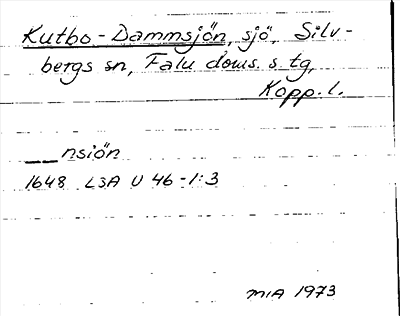 Kutbo-Dammsjön, sjö, Silv-
bergs sn, Falu doms. s. tg,
Kopp. l.
___nsiön
1648 LSA U 46-1:3
MIA 1973